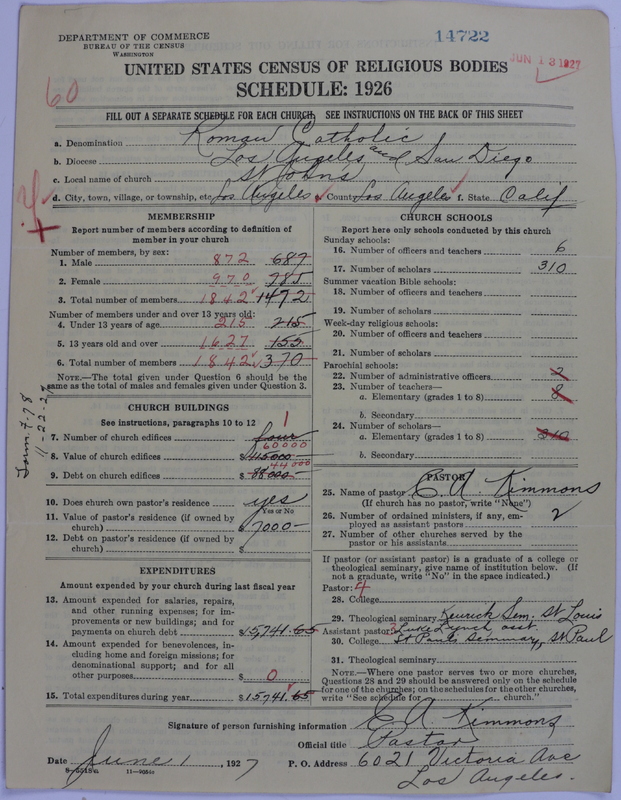 DEPARTMENT OF COMMERCE
BUREAU OF THE CENSUS
WASHINGTON
14722
JUN 13 1927
UNITED STATES CENSUS OF RELIGIOUS BODIES
SCHEDULE: 1926
60
FILL OUT A SEPARATE SCHEDULE FOR EACH CHURCH. SEE INSTRUCTIONS ON THE BACK OF THIS SHEET
a. Denomination Roman Catholic
b. Diocese Los Angeles and San Diego
c. Local name of church St Johns
d. City, town, village, or township, etc. Los Angeles County Los Angeles f. State Calif
MEMBERSHIP
Report number of members according to definition of
member in your church
Number of members, by sex:
1. Male 872 687
2. Female 970 785
3. Total number of members 1842 1472
Number of members under and over 13 years old:
4. Under 13 years of age 215 215
5. 13 years old and over 1627 155
6. Total number of members 1842 370
NOTE.—The total given under Question 6 should be the
same as the total of males and females given under Question 3.
11-22-27
CHURCH BUILDINGS
See instructions, paragraphs 10 to 12
7. Number of church edifices four 1
8. Value of church edifices $115000 60000
9. Debt on church edifices $88000 44000
10. Does church own pastor's residence yes
Yes or No
11. Value of pastor's residence (if owned by
church) $7000-
12. Debt on pastor's residence (if owned by
church) $
EXPENDITURES
Amount expended by your church during last fiscal year
13. Amount expended for salaries, repairs,
and other running expenses; for im-
provements or new buildings; and for
payments on church debt $15,741.65
14. Amount expended for benevolences, in-
cluding home and foreign missions; for
denominational support; and for all
other purposes $ 0
15. Total expenditures during year $15741.65
CHURCH SCHOOLS
Report here only schools conducted by this church
Sunday schools:
16. Number of officers and teachers 6
17. Number of scholars 310
Summer vacation Bible schools:
18. Number of officers and teachers
19. Number of scholars
Week-day religious schools:
20. Number of officers and teachers
21. Number of scholars
Parochial schools:
22. Number of administrative officers 2
23. Number of teachers—
a. Elementary (grades 1 to 8) 8
b. Secondary
24. Number of scholars—
a. Elementary (grades 1 to 8) 310
b. Secondary
PASTOR
25. Name of pastor C. A. Kimmons
(If church has no pastor, write "None")
26. Number of ordained ministers, if any, em-
ployed as assistant pastors 2
27. Number of other churches served by the
pastor or his assistants
If pastor (or assistant pastor) is a graduate of a college or
theological seminary, give name of institution below. (If
not a graduate, write "No" in the space indicated.)
Pastor: 4
28. College
29. Theological seminary Kenrick Sem. St Louis
Assistant pastor: 3 Luke Lynch asst.
30. College St Pauls Seminary, St Paul
31. Theological seminary
NOTE.—Where one pastor serves two or more churches,
Questions 28 and 29 should be answered only on the schedule
for one of the churches; on the schedules for the other churches,
write "See schedule for church."
Signature of person furnishing information C A Kimmons
Official title Pastor
Date June 1, 1927 P. O. Address 6021 Victoria Ave
Los Angeles.